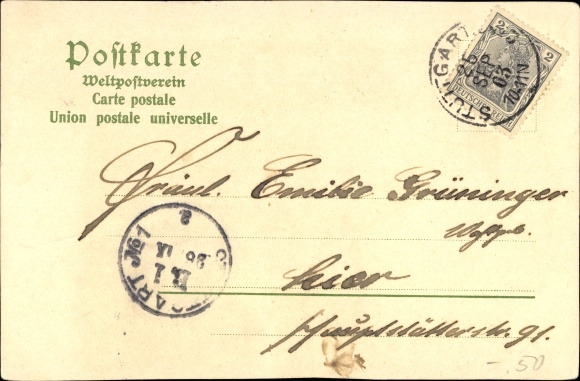 Postkarte
Weltpostverein
Carte postale
Union postale universelle
STUTTGART
25 SEP 03
10-11N
2 2
DEUTSCHES REICH
Fräul. Emilie Grüninger
hier
Hauptstätterstr. 91.
STUTTGART No 1
26 IX
a
-.50